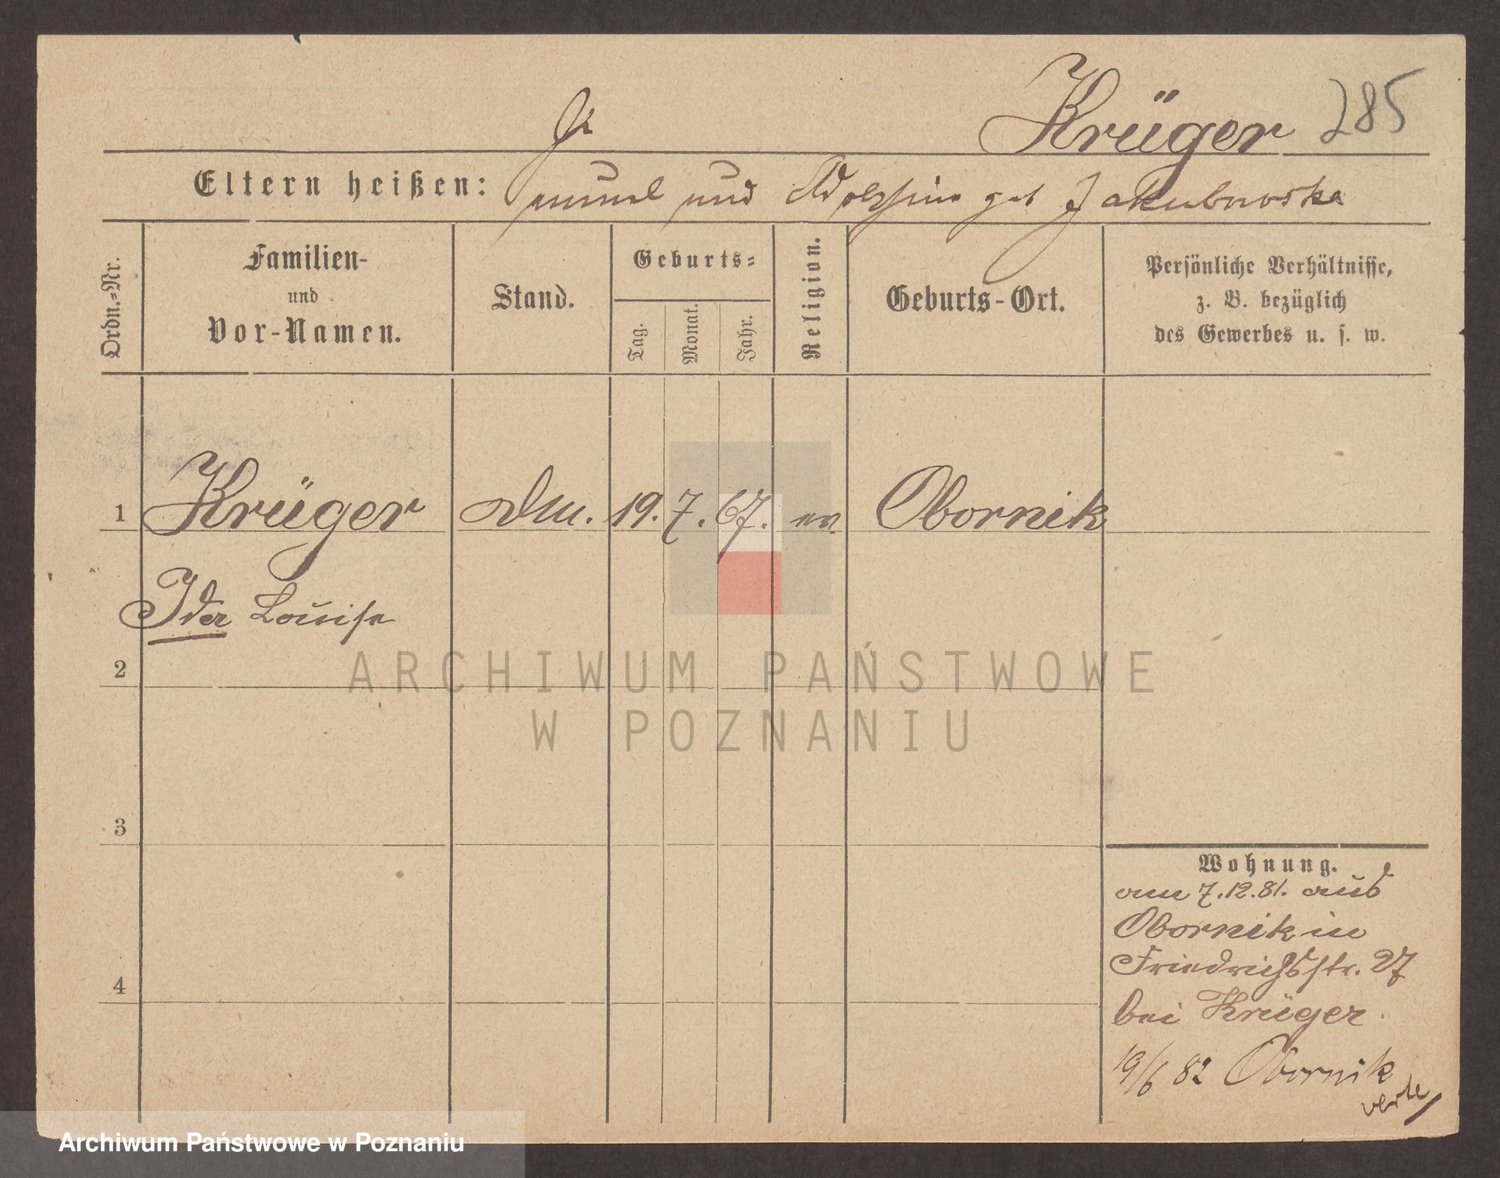 Krüger 285
Eltern heißen: und geb Jakubowska
Ordn.-Nr.
Familien-
und
Vor-Namen.
Stand.
Geburts-
Tag.
Monat.
Jahr.
Religion.
Geburts-Ort.
Persönliche Verhältnisse,
z. B. bezüglich
des Gewerbes u. s. w.
1 Krüger 19. 7. 67. ev Obornik
Ida Louise
2
3
4
Wohnung.
am 7.12.81. aus
Obornik in
Friedrichsstr. 27
bei Krüger.
19/6 82 Obornik
verte
ARCHIWUM PAŃSTWOWE
W POZNANIU
Archiwum Państwowe w Poznaniu